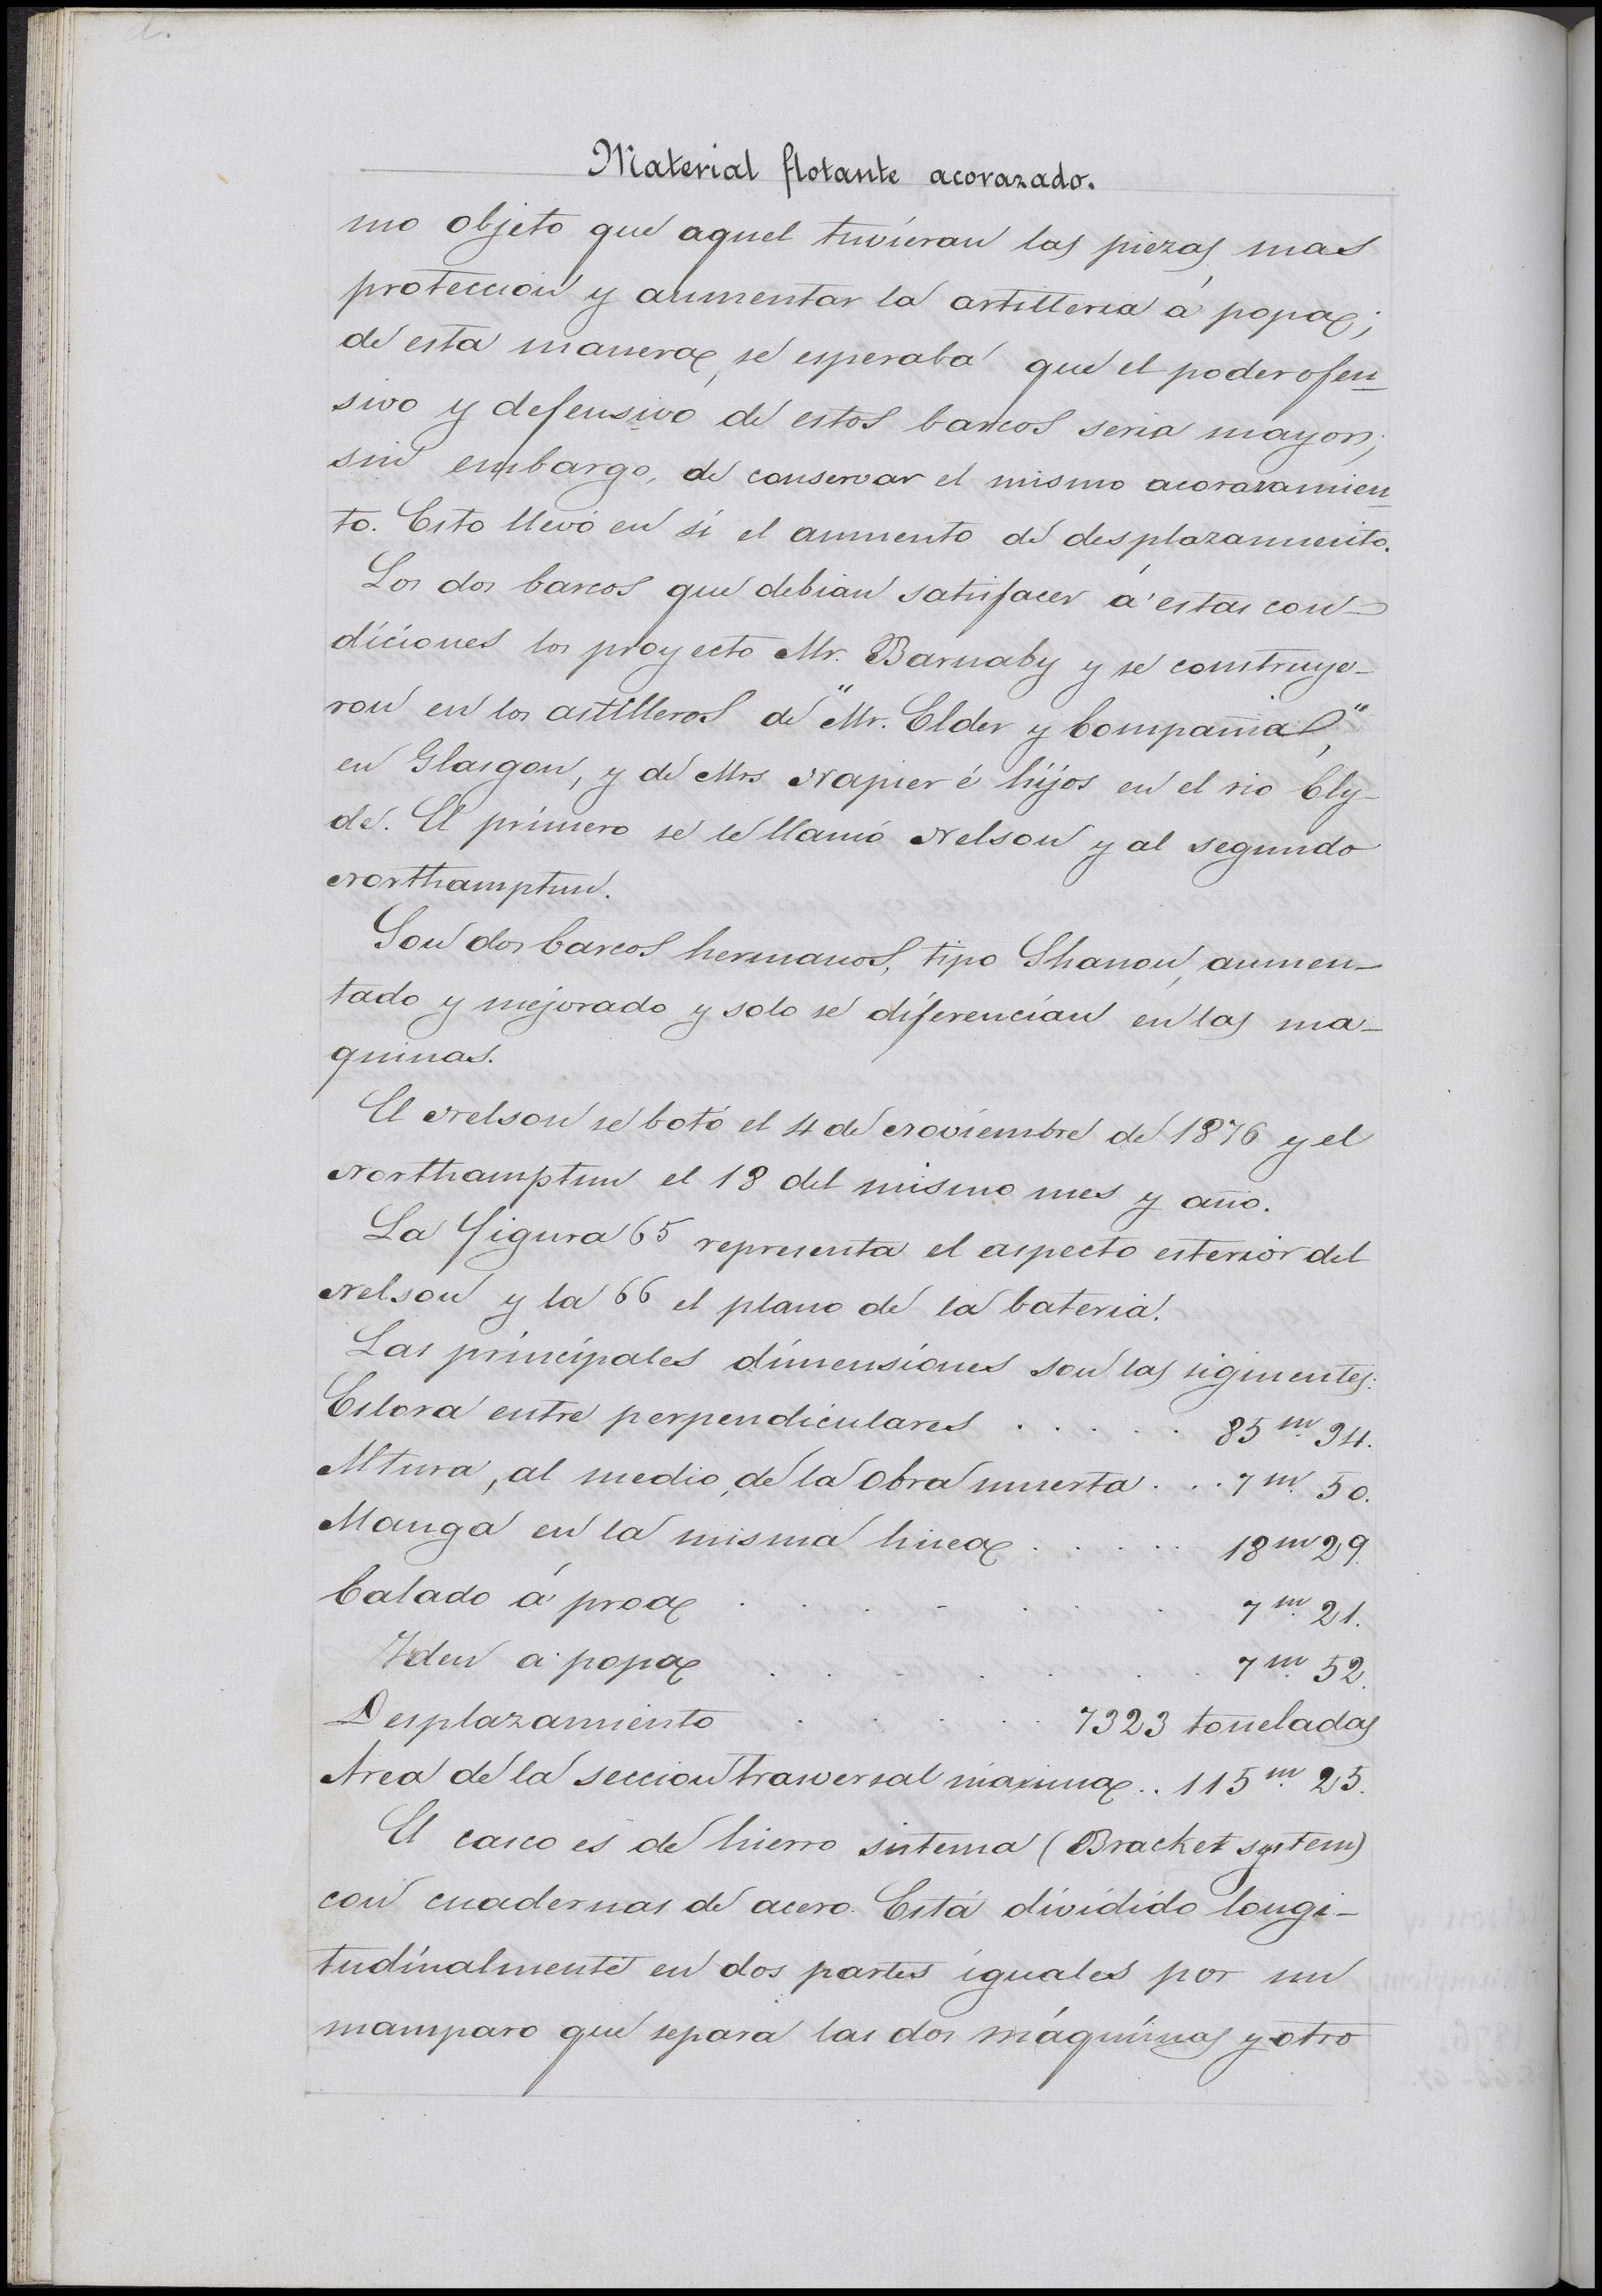 Material flotante acorazado.
mo objeto que aquel tuvieran las piezas mas
proteccion y aumentar la artilleria á popa;
de esta manera, se esperaba que el poder ofen
sivo y defensivo de estos barcos seria mayor;
sin embargo, de conservar el mismo acorazamien
to. Esto llevó en si el aumento de desplazamiento.
Los dos barcos que debian satisfacer á estas con-
diciones los proyecto Mr. Barnaby y se construye-
ron en los astilleros de "Mr. Elder y Compañia",
en Glasgow, y de Mrs Napier é hijos en el rio Cly-
de. El primero se le llamó Nelson y al segundo
Northamptun.
Son dos barcos hermanos, tipo Shanon, aumen-
tado y mejorado y solo se diferencian en las ma-
quinas.
El Nelson se botó el 4 de Noviembre de 1876 y el
Northamptun el 18 del mismo mes y año.
La figura 65 representa el aspecto esterior del
Nelson y la 66 el plano de la bateria.
Las principales dimensiones son las siguientes:
Eslora entre perpendiculares . . . . . 85 m 94.
Altura, al medio, de la obra muerta . . . 7 m. 50.
Manga en la misma linea . . . . . 18 m 29.
Calado á proa . . . . . . . 7 m. 21.
Iden a popa . . . . . . . 7 m. 52.
Desplazamiento . . . . . 7323 toneladas
Area de la seccion trasversal maxima .. 115 m. 25.
El casco es de hierro sistema (Bracket system)
con cuadernas de acero. Está dividido longi-
tudinalmente en dos partes iguales por un
mamparo que separa las dos máquinas y otro